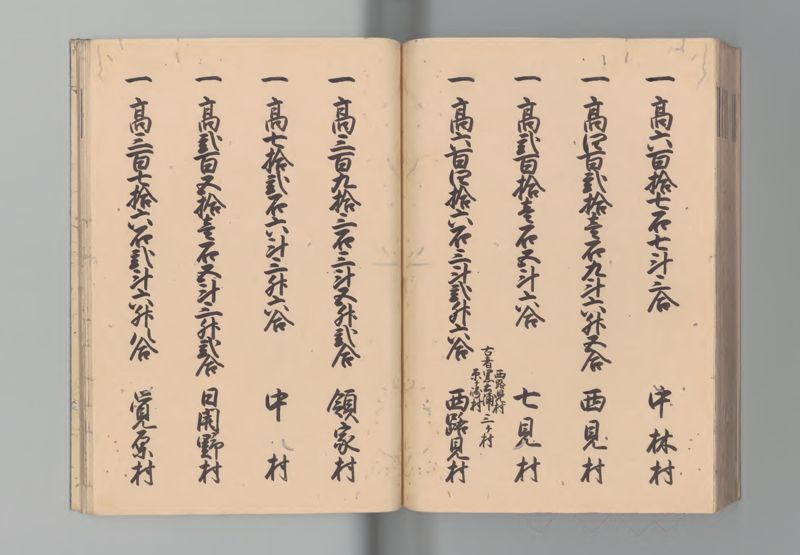 一 高六百拾七石七斗三合 中林村
一 高四百弐拾壱石九斗六升五合 西見村
一 高弐百拾壱石五斗六合 七見村
一 高六百四拾六石三斗弐升六合 西路見村
西路見村
古者里土浦 三ヶ村
村
一 高三百九拾三石三斗五升弐合 領家村
一 高七拾弐石六斗三升六合 中村
一 高弐百五拾壱石五斗三升弐合 日開野村
一 高三百七拾六石弐斗六升八合 原村